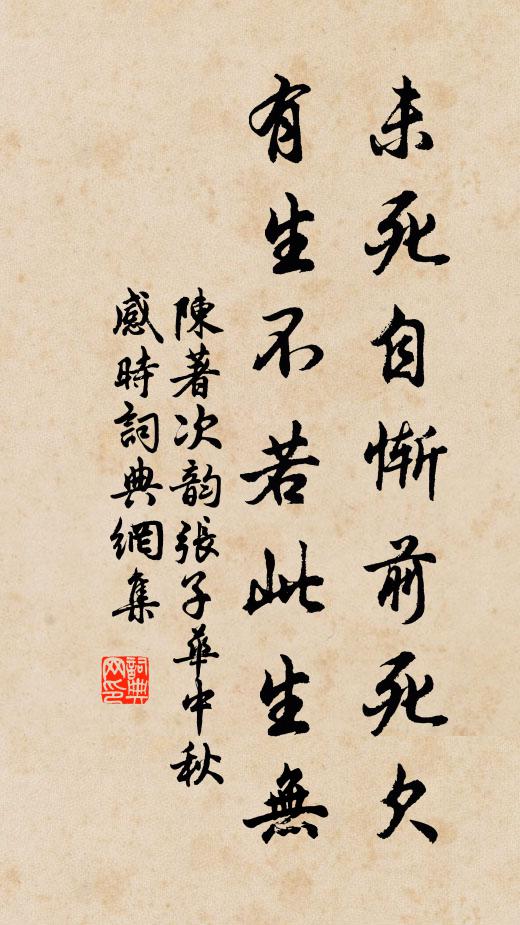 未死自慚前死久
有生不若此生無
陳著次韵張子華中秋
感時詞典網集
詞典
网印